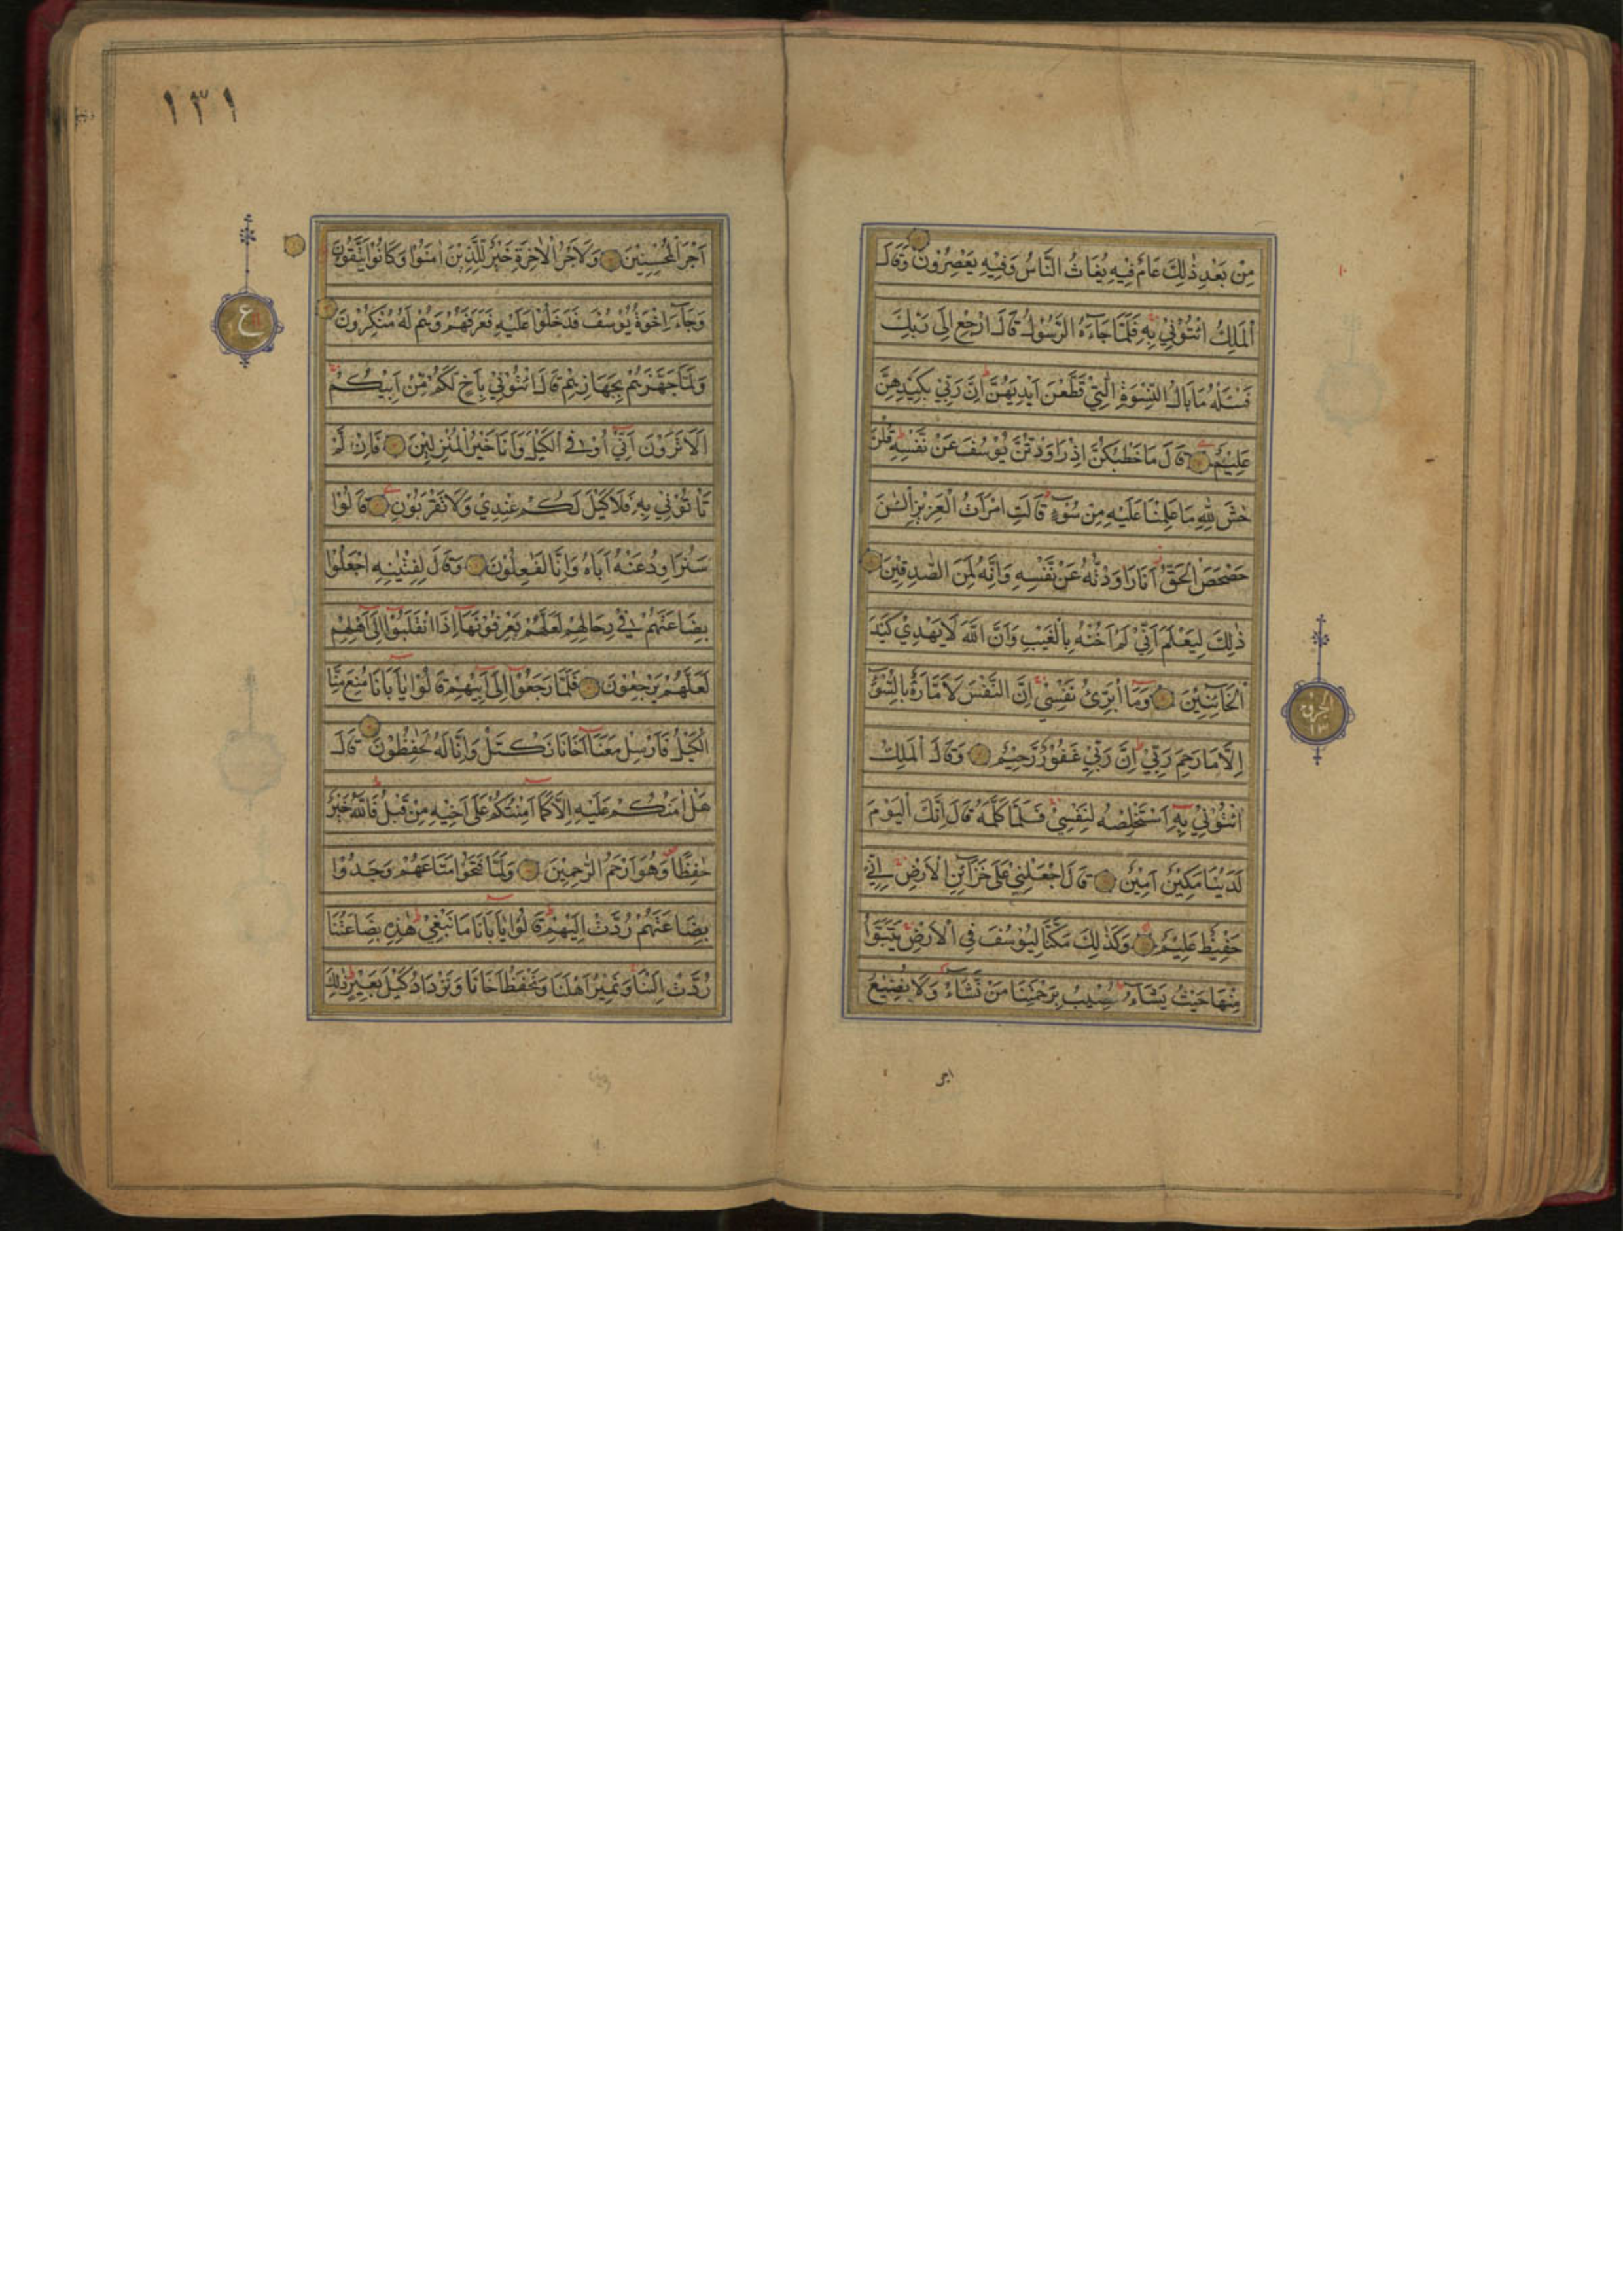 مِنْ بَعْدِ ذٰلِكَ عَامٌ فِيْهِ يُغَاثُ النَّاسُ وَفِيْهِ يَعْصِرُوْنَ وَقَالَ
الْمَلِكُ ائْتُوْنِيْ بِهٖ فَلَمَّا جَآءَهُ الرَّسُوْلُ قَالَ ارْجِعْ اِلٰى رَبِّكَ
فَسْـَٔلْهُ مَا بَالُ النِّسْوَةِ الّٰتِيْ قَطَّعْنَ اَيْدِيَهُنَّ اِنَّ رَبِّيْ بِكَيْدِهِنَّ
عَلِيْمٌ قَالَ مَا خَطْبُكُنَّ اِذْ رَاوَدْتُّنَّ يُوْسُفَ عَنْ نَّفْسِهٖ قُلْنَ
حٰشَ لِلّٰهِ مَا عَلِمْنَا عَلَيْهِ مِنْ سُوْٓءٍ قَالَتِ امْرَاَتُ الْعَزِيْزِ الْـٰٔنَ
حَصْحَصَ الْحَقُّ اَنَا رَاوَدْتُّهٗ عَنْ نَّفْسِهٖ وَاِنَّهٗ لَمِنَ الصّٰدِقِيْنَ
ذٰلِكَ لِيَعْلَمَ اَنِّيْ لَمْ اَخُنْهُ بِالْغَيْبِ وَاَنَّ اللّٰهَ لَا يَهْدِيْ كَيْدَ
الْخَآئِنِيْنَ وَمَآ اُبَرِّئُ نَفْسِيْ اِنَّ النَّفْسَ لَاَمَّارَةٌ بِالسُّوْٓءِ
اِلَّا مَا رَحِمَ رَبِّيْ اِنَّ رَبِّيْ غَفُوْرٌ رَّحِيْمٌ وَقَالَ الْمَلِكُ
ائْتُوْنِيْ بِهٖٓ اَسْتَخْلِصْهُ لِنَفْسِيْ فَلَمَّا كَلَّمَهٗ قَالَ اِنَّكَ الْيَوْمَ
لَدَيْنَا مَكِيْنٌ اَمِيْنٌ قَالَ اجْعَلْنِيْ عَلٰى خَزَآئِنِ الْاَرْضِ اِنِّيْ
حَفِيْظٌ عَلِيْمٌ وَكَذٰلِكَ مَكَّنَّا لِيُوْسُفَ فِي الْاَرْضِ يَتَبَوَّاُ
مِنْهَا حَيْثُ يَشَآءُ نُصِيْبُ بِرَحْمَتِنَا مَنْ نَّشَآءُ وَلَا نُضِيْعُ
اجر
الجزو
١٣
١٣١
اَجْرَ الْمُحْسِنِيْنَ وَلَاَجْرُ الْاٰخِرَةِ خَيْرٌ لِّلَّذِيْنَ اٰمَنُوْا وَكَانُوْا يَتَّقُوْنَ
وَجَآءَ اِخْوَةُ يُوْسُفَ فَدَخَلُوْا عَلَيْهِ فَعَرَفَهُمْ وَهُمْ لَهٗ مُنْكِرُوْنَ
وَلَمَّا جَهَّزَهُمْ بِجَهَازِهِمْ قَالَ ائْتُوْنِيْ بِاَخٍ لَّكُمْ مِّنْ اَبِيْكُمْ
اَلَا تَرَوْنَ اَنِّيْٓ اُوْفِي الْكَيْلَ وَاَنَا خَيْرُ الْمُنْزِلِيْنَ فَاِنْ لَّمْ
تَأْتُوْنِيْ بِهٖ فَلَا كَيْلَ لَكُمْ عِنْدِيْ وَلَا تَقْرَبُوْنِ قَالُوْا
سَنُرَاوِدُ عَنْهُ اَبَاهُ وَاِنَّا لَفٰعِلُوْنَ وَقَالَ لِفِتْيٰنِهِ اجْعَلُوْا
بِضَاعَتَهُمْ فِيْ رِحَالِهِمْ لَعَلَّهُمْ يَعْرِفُوْنَهَآ اِذَا انْقَلَبُوْٓا اِلٰٓى اَهْلِهِمْ
لَعَلَّهُمْ يَرْجِعُوْنَ فَلَمَّا رَجَعُوْٓا اِلٰٓى اَبِيْهِمْ قَالُوْا يٰٓاَبَانَا مُنِعَ مِنَّا
الْكَيْلُ فَاَرْسِلْ مَعَنَآ اَخَانَا نَكْتَلْ وَاِنَّا لَهٗ لَحٰفِظُوْنَ قَالَ
هَلْ اٰمَنُكُمْ عَلَيْهِ اِلَّا كَمَآ اَمِنْتُكُمْ عَلٰٓى اَخِيْهِ مِنْ قَبْلُ فَاللّٰهُ خَيْرٌ
حٰفِظًا وَهُوَ اَرْحَمُ الرّٰحِمِيْنَ وَلَمَّا فَتَحُوْا مَتَاعَهُمْ وَجَدُوْا
بِضَاعَتَهُمْ رُدَّتْ اِلَيْهِمْ قَالُوْا يٰٓاَبَانَا مَا نَبْغِيْ هٰذِهٖ بِضَاعَتُنَا
رُدَّتْ اِلَيْنَا وَنَمِيْرُ اَهْلَنَا وَنَحْفَظُ اَخَانَا وَنَزْدَادُ كَيْلَ بَعِيْرٍ ذٰلِكَ
ع